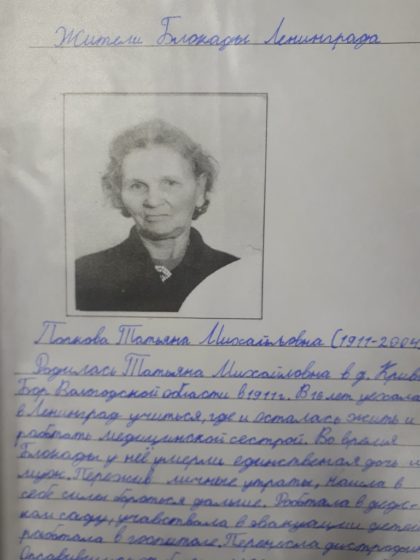 Жители Блокады Ленинграда
Попкова Татьяна Михайловна (1911-2004)
Родилась Татьяна Михайловна в д. Криво
Бор Вологодской области в 1911 г. В 16 лет уехала
в Ленинград учиться, где и осталась жить и
работать медицинской сестрой. Во время
Блокады у неё умерли единственая дочь и
муж. Пережив личные утраты, нашла в
себе силы бороться дальше. Работала в детс-
ком саду, учавствала в эвакуации детей
работала в госпитале. Перенесла дистрофа